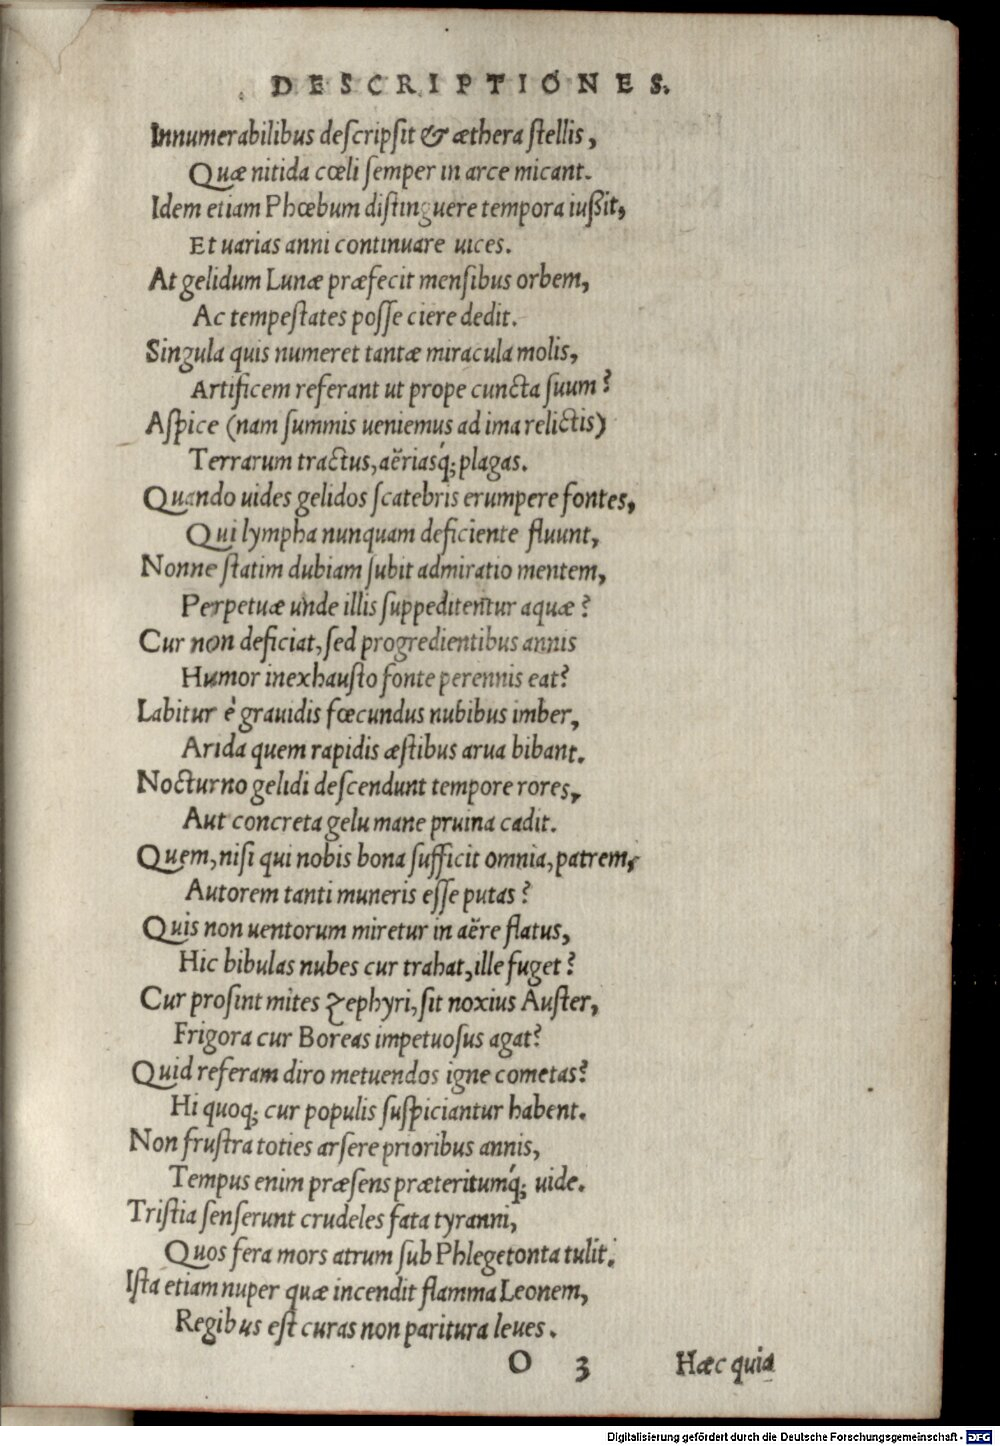 DESCRIPTIONES.
Innumerabilibus descripsit & æthera stellis,
Quæ nitida cœli semper in arce micant.
Idem etiam Phœbum distinguere tempora iußit,
Et uarias anni continuare uices.
At gelidum Lunæ præfecit mensibus orbem,
Ac tempestates posse ciere dedit.
Singula quis numeret tantæ miracula molis,
Artificem referant ut prope cuncta suum?
Aspice (nam summis ueniemus ad ima relictis)
Terrarum tractus, aëriasq́; plagas.
Quando uides gelidos scatebris erumpere fontes,
Qui lympha nunquam deficiente fluunt,
Nonne statim dubiam subit admiratio mentem,
Perpetuæ unde illis suppeditentur aquæ?
Cur non deficiat, sed progredientibus annis
Humor inexhausto fonte perennis eat?
Labitur è grauidis fœcundus nubibus imber,
Arida quem rapidis æstibus arua bibant.
Nocturno gelidi descendunt tempore rores,
Aut concreta gelu mane pruina cadit.
Quem, nisi qui nobis bona sufficit omnia, patrem,
Autorem tanti muneris esse putas?
Quis non uentorum miretur in aëre flatus,
Hic bibulas nubes cur trahat, ille fuget?
Cur prosint mites zephyri, sit noxius Auster,
Frigora cur Boreas impetuosus agat?
Quid referam diro metuendos igne cometas?
Hi quoq; cur populis suspiciantur habent.
Non frustra toties arsere prioribus annis,
Tempus enim præsens præteritumq́; uide.
Tristia senserunt crudeles fata tyranni,
Quos fera mors atrum sub Phlegetonta tulit.
Ista etiam nuper quæ incendit flamma Leonem,
Regibus est curas non paritura leues.
O 3 Hæc quia
Digitalisierung gefördert durch die Deutsche Forschungsgemeinschaft - DFG